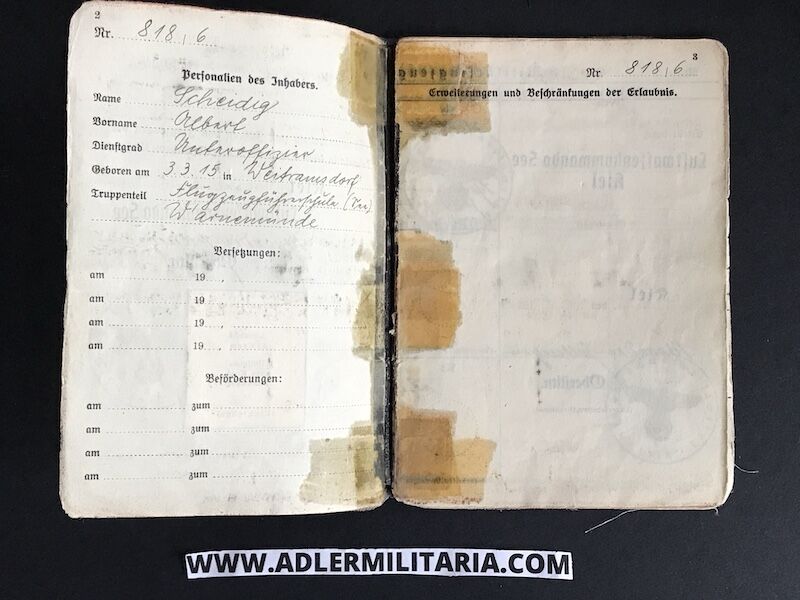 2
Nr. 818/6
Personalien des Inhabers.
Name Scheidig
Vorname Albert
Dienstgrad Unteroffizier
Geboren am 3.3.15 in Weitramsdorf
Truppenteil Flugzeugführerschule (See)
Warnemünde
Versetzungen:
am 19 ,
am 19 ,
am 19 ,
am 19 ,
Beförderungen:
am zum
am zum
am zum
am zum
3
Nr. 818/6
Erweiterungen und Beschränkungen der Erlaubnis.
Luftwaffenkommando See
Kiel
Kiel
Oberstltn.
WWW.ADLERMILITARIA.COM